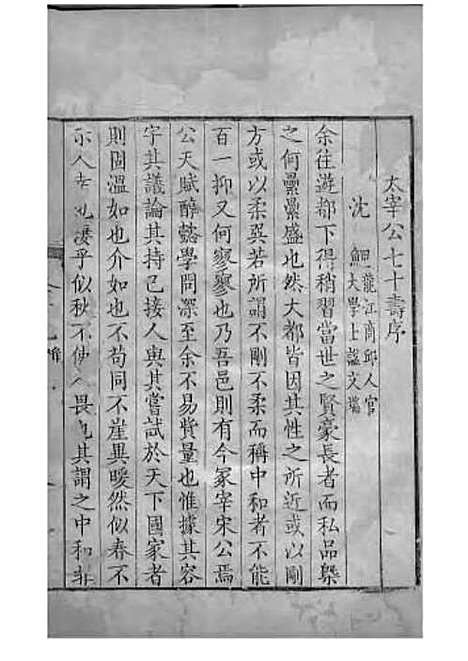 太宰公七十壽序
沈鯉龍江商邱人官大學士諡文端
余往遊都下得稍習當世之賢豪長者而私品槩
之何纍纍盛也然大都皆因其性之所近或以剛
方或以柔巽若所謂不剛不柔而稱中和者不能
百一抑又何寥寥也乃吾邑則有今冢宰宋公焉
公天賦醇懿學問深至余不易貲量也惟據其容
宇其議論其持己接人與其嘗試於天下國家者
則固溫如也介如也不苟同不崖異暖然似春不
人淒乎似秋不使人畏其謂之中和非